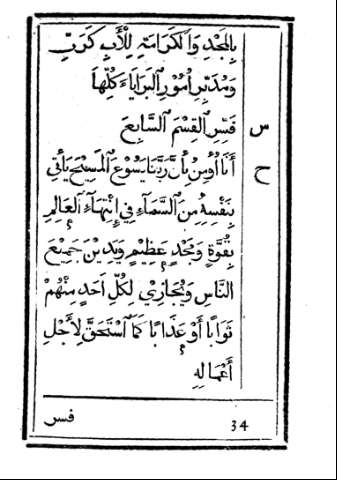 بِالْمَجْدِ وَالْكَرَامَةِ لِلْأَبِ كَرَبٍّ
وَمُدَبِّرِ اُمُورِ الْبَرَايَاءِ كُلِّهَا
س فَسِّرِ الْقِسْمَ السَّابِعَ
ح أَنَا اُوُمِنُ بِأَنَّ رَبَّنَا يَسُوْعَ الْمَسِيْحَ يَأْتِي
بِنَفْسِهِ مِنَ السَّمَآءِ فِي اِنْتِهَآءِ الْعَالَمِ
بِقُوَّةٍ وَمَجْدٍ عَظِيْمٍ وَيَدِيْنَ جَمِيْعَ
النَّاسِ وَيُجَازِيْ لِكُلِّ اَحَدٍ مِنْهُمْ
ثَوَابًا أَوْ عَذَابًا كَمَا اسْتَحَقَّ لِأَجْلِ
أَعْمَالِهِ
34 فسر